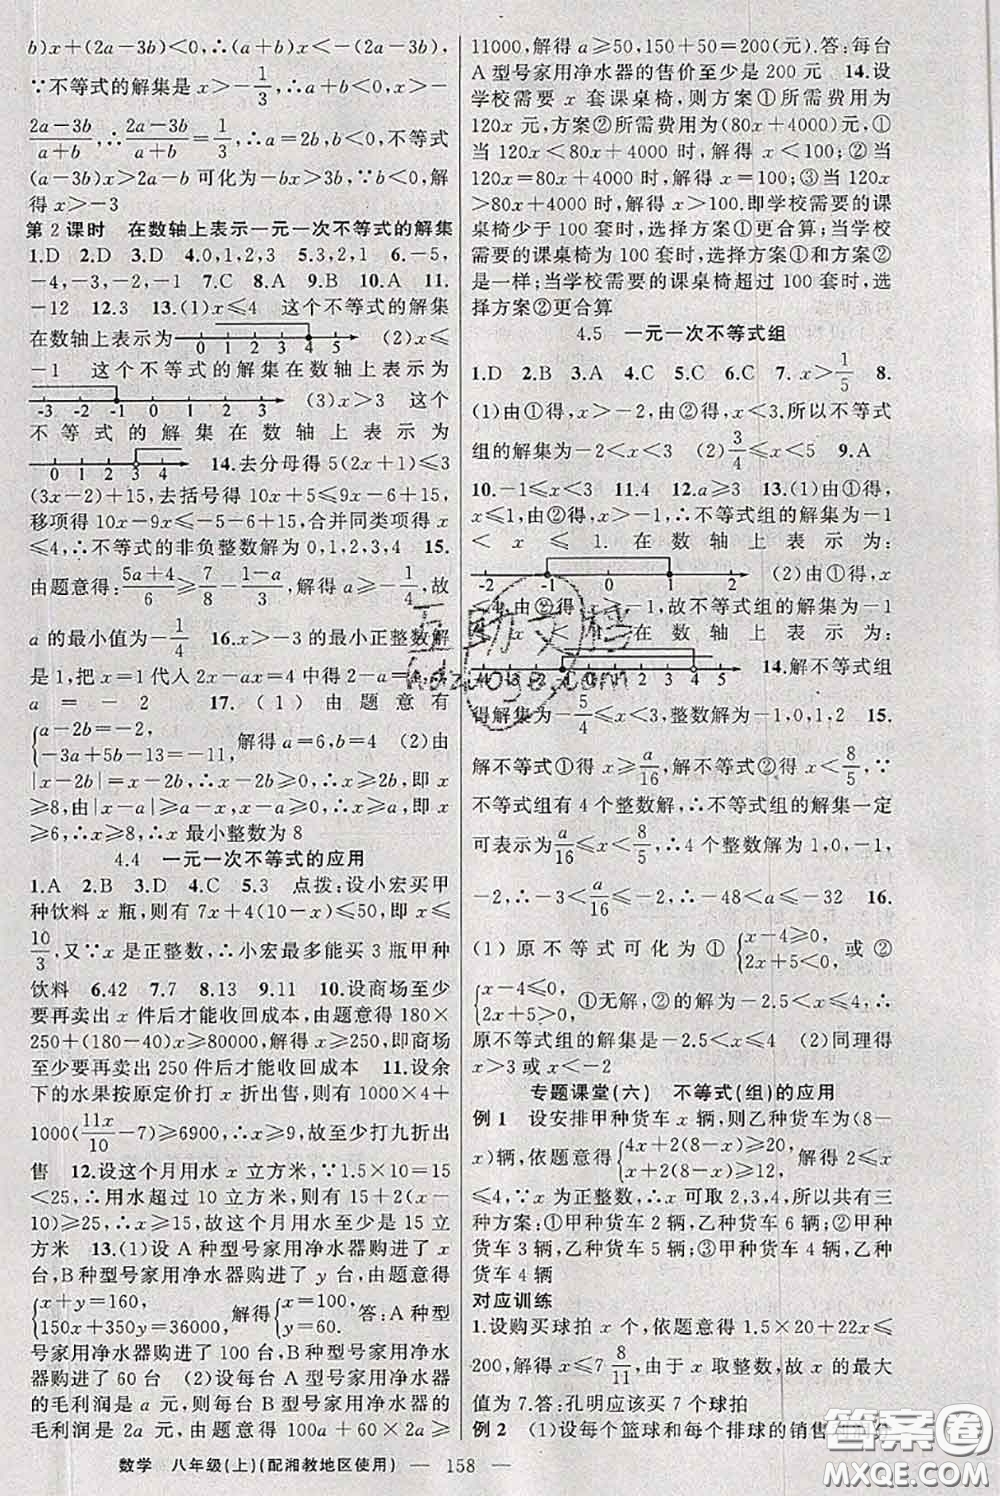 b)x+(2a-3b)<0,∴(a+b)x<-(2a-3b),
∵不等式的解集是 x>-1/3,∴a+b<0,x>-
(2a-3b)/(a+b),∴(2a-3b)/(a+b)=1/3,∴a=2b,b<0,不等式
(a-3b)x>2a-b 可化为-bx>3b,∵b<0,解
得 x>-3
第2课时 在数轴上表示一元一次不等式的解集
1.D 2.D 3.D 4.0,1,2 5.3,2,1 6.-5,
-4,-3,-2,-1 7.C 8.A 9.A 10.A 11.
-12 12.3 13.(1)x≤4 这个不等式的解集
在数轴上表示为 0 1 2 3 4 5 (2)x≤
-1 这个不等式的解集在数轴上表示为
-3 -2 -1 0 1 2 3 (3)x>3 这个
不等式的解集在数轴上表示为
0 1 2 3 4 14.去分母得 5(2x+1)≤3
(3x-2)+15,去括号得 10x+5≤9x-6+15,
移项得 10x-9x≤-5-6+15,合并同类项得 x
≤4,∴不等式的非负整数解为 0,1,2,3,4 15.
由题意得:(5a+4)/6≥7/8-(1-a)/3,解得 a≥-1/4,故
a 的最小值为-1/4 16.x>-3 的最小正整数解
是 1,把 x=1 代入 2x-ax=4 中得 2-a=4,
a=-2 17.(1)由题意有
{a-2b=-2,
-3a+5b-13=-11, 解得 a=6,b=4 (2)由
|x-2b|=x-2b,∴x-2b≥0,∴x≥2b,即 x
≥8,由|x-a|≥a-x,∴x-a≥0,∴x≥a,即 x
≥6,∴x≥8,∴x 最小整数为 8
4.4 一元一次不等式的应用
1.A 2.B 3.D 4.C 5.3 点拨:设小宏买甲
种饮料 x 瓶,则有 7x+4(10-x)≤50,即 x≤
10/3,又∵x 是正整数,∴小宏最多能买 3 瓶甲种
饮料 6.42 7.7 8.13 9.11 10.设商场至少
要再卖出 x 件后才能收回成本,由题意得 180×
250+(180-40)x≥80000,解得 x≥250,即商场
至少要再卖出 250 件后才能收回成本 11.设余
下的水果按原定价打 x 折出售,有 1000×4+
1000(11x/10-7)≥6900,∴x≥9,故至少打九折出
售 12.设这个月用水 x 立方米,∵1.5×10=15
<25,∴用水超过 10 立方米,则有 15+2(x-10)
≥25,∴x≥15,故这个月用水至少是 15 立
方米 13.(1)设 A 种型号家用净水器购进了 x
台,B 种型号家用净水器购进了 y 台,由题意得
{x+y=160,
150x+350y=36000, 解得{x=100,
y=60. 答:A 种型
号家用净水器购进了 100 台,B 种型号家用净水
器购进了 60 台 (2)设每台 A 型号家用净水器
的毛利润是 a 元,则每台 B 型号家用净水器的
毛利润是 2a 元,由题意得 100a+60×2a≥
11000,解得 a≥50,150+50=200(元).答:每台
A 型号家用净水器的售价至少是 200 元 14.设
学校需要 x 套课桌椅,则方案①所需费用为
120x 元,方案②所需费用为(80x+4000)元,①
当 120x<80x+4000 时,解得 x<100;②当
120x=80x+4000 时,解得 x=100;③当 120x
>80x+4000 时,解得 x>100.即学校需要的课
桌椅少于 100 套时,选择方案①更合算;当学校
需要的课桌椅为 100 套时,选择方案①和方案②
是一样;当学校需要的课桌椅超过 100 套时,选
择方案②更合算
4.5 一元一次不等式组
1.D 2.B 3.A 4.C 5.C 6.C 7.x>1/5 8.
(1)由①得,x>-2,由②得,x<3.所以不等式
组的解集为-2<x<3 (2)3/4≤x≤5 9.A
10.-1≤x<3 11.4 12.a≥3 13.(1)由①得,
x≤1,由②得,x>-1,∴不等式组的解集为-1
<x≤1.在数轴上表示为:
-2 -1 0 1 2 (2)由①得,x
<4,由②得,x>-1,故不等式组的解集为-1
<x<4.在数轴上表示为:
-4 -3 -2 -1 0 1 2 3 4 5 14.解不等式组
得解集为-5/4≤x<3,整数解为-1,0,1,2 15.
解不等式①得 x≥a/16,解不等式②得 x<8/5,∵
不等式组有 4 个整数解,∴不等式组的解集一定
可表示为 a/16≤x<8/5,∴4 个整数解为 1,0,-1,
-2,∴-3<a/16≤-2,∴-48<a≤-32 16.
(1)原不等式可化为①{x-4≥0,
2x+5<0, 或②
{x-4≤0,
2x+5>0, ①无解,②的解为-2.5<x<4,∴
原不等式组的解集为-2.5<x<4 (2)同理得
x>3 或 x<-2
专题课堂(六) 不等式(组)的应用
例 1 设安排甲种货车 x 辆,则乙种货车为(8-
x)辆,依题意得{4x+2(8-x)≥20,
x+2(8-x)≥12, 解得 2≤x
≤4,∵x 为正整数,∴x 可取 2,3,4,所以共有三
种方案:①甲种货车 2 辆,乙种货车 6 辆;②甲种
货车 3 辆,乙种货车 5 辆;③甲种货车 4 辆,乙种
货车 4 辆
对应训练
1.设购买球拍 x 个,依题意得 1.5×20+22x≤
200,解得 x≤7 8/11,由于 x 取整数,故 x 的最大
值为 7.答:孔明应该买 7 个球拍
例 2 (1)设每个篮球和每个排球的销售利润分
数学 八年级(上)(配湘教地区使用) — 158 —
互助文档
hdzuoye.com
答案圈
MXQE.COM